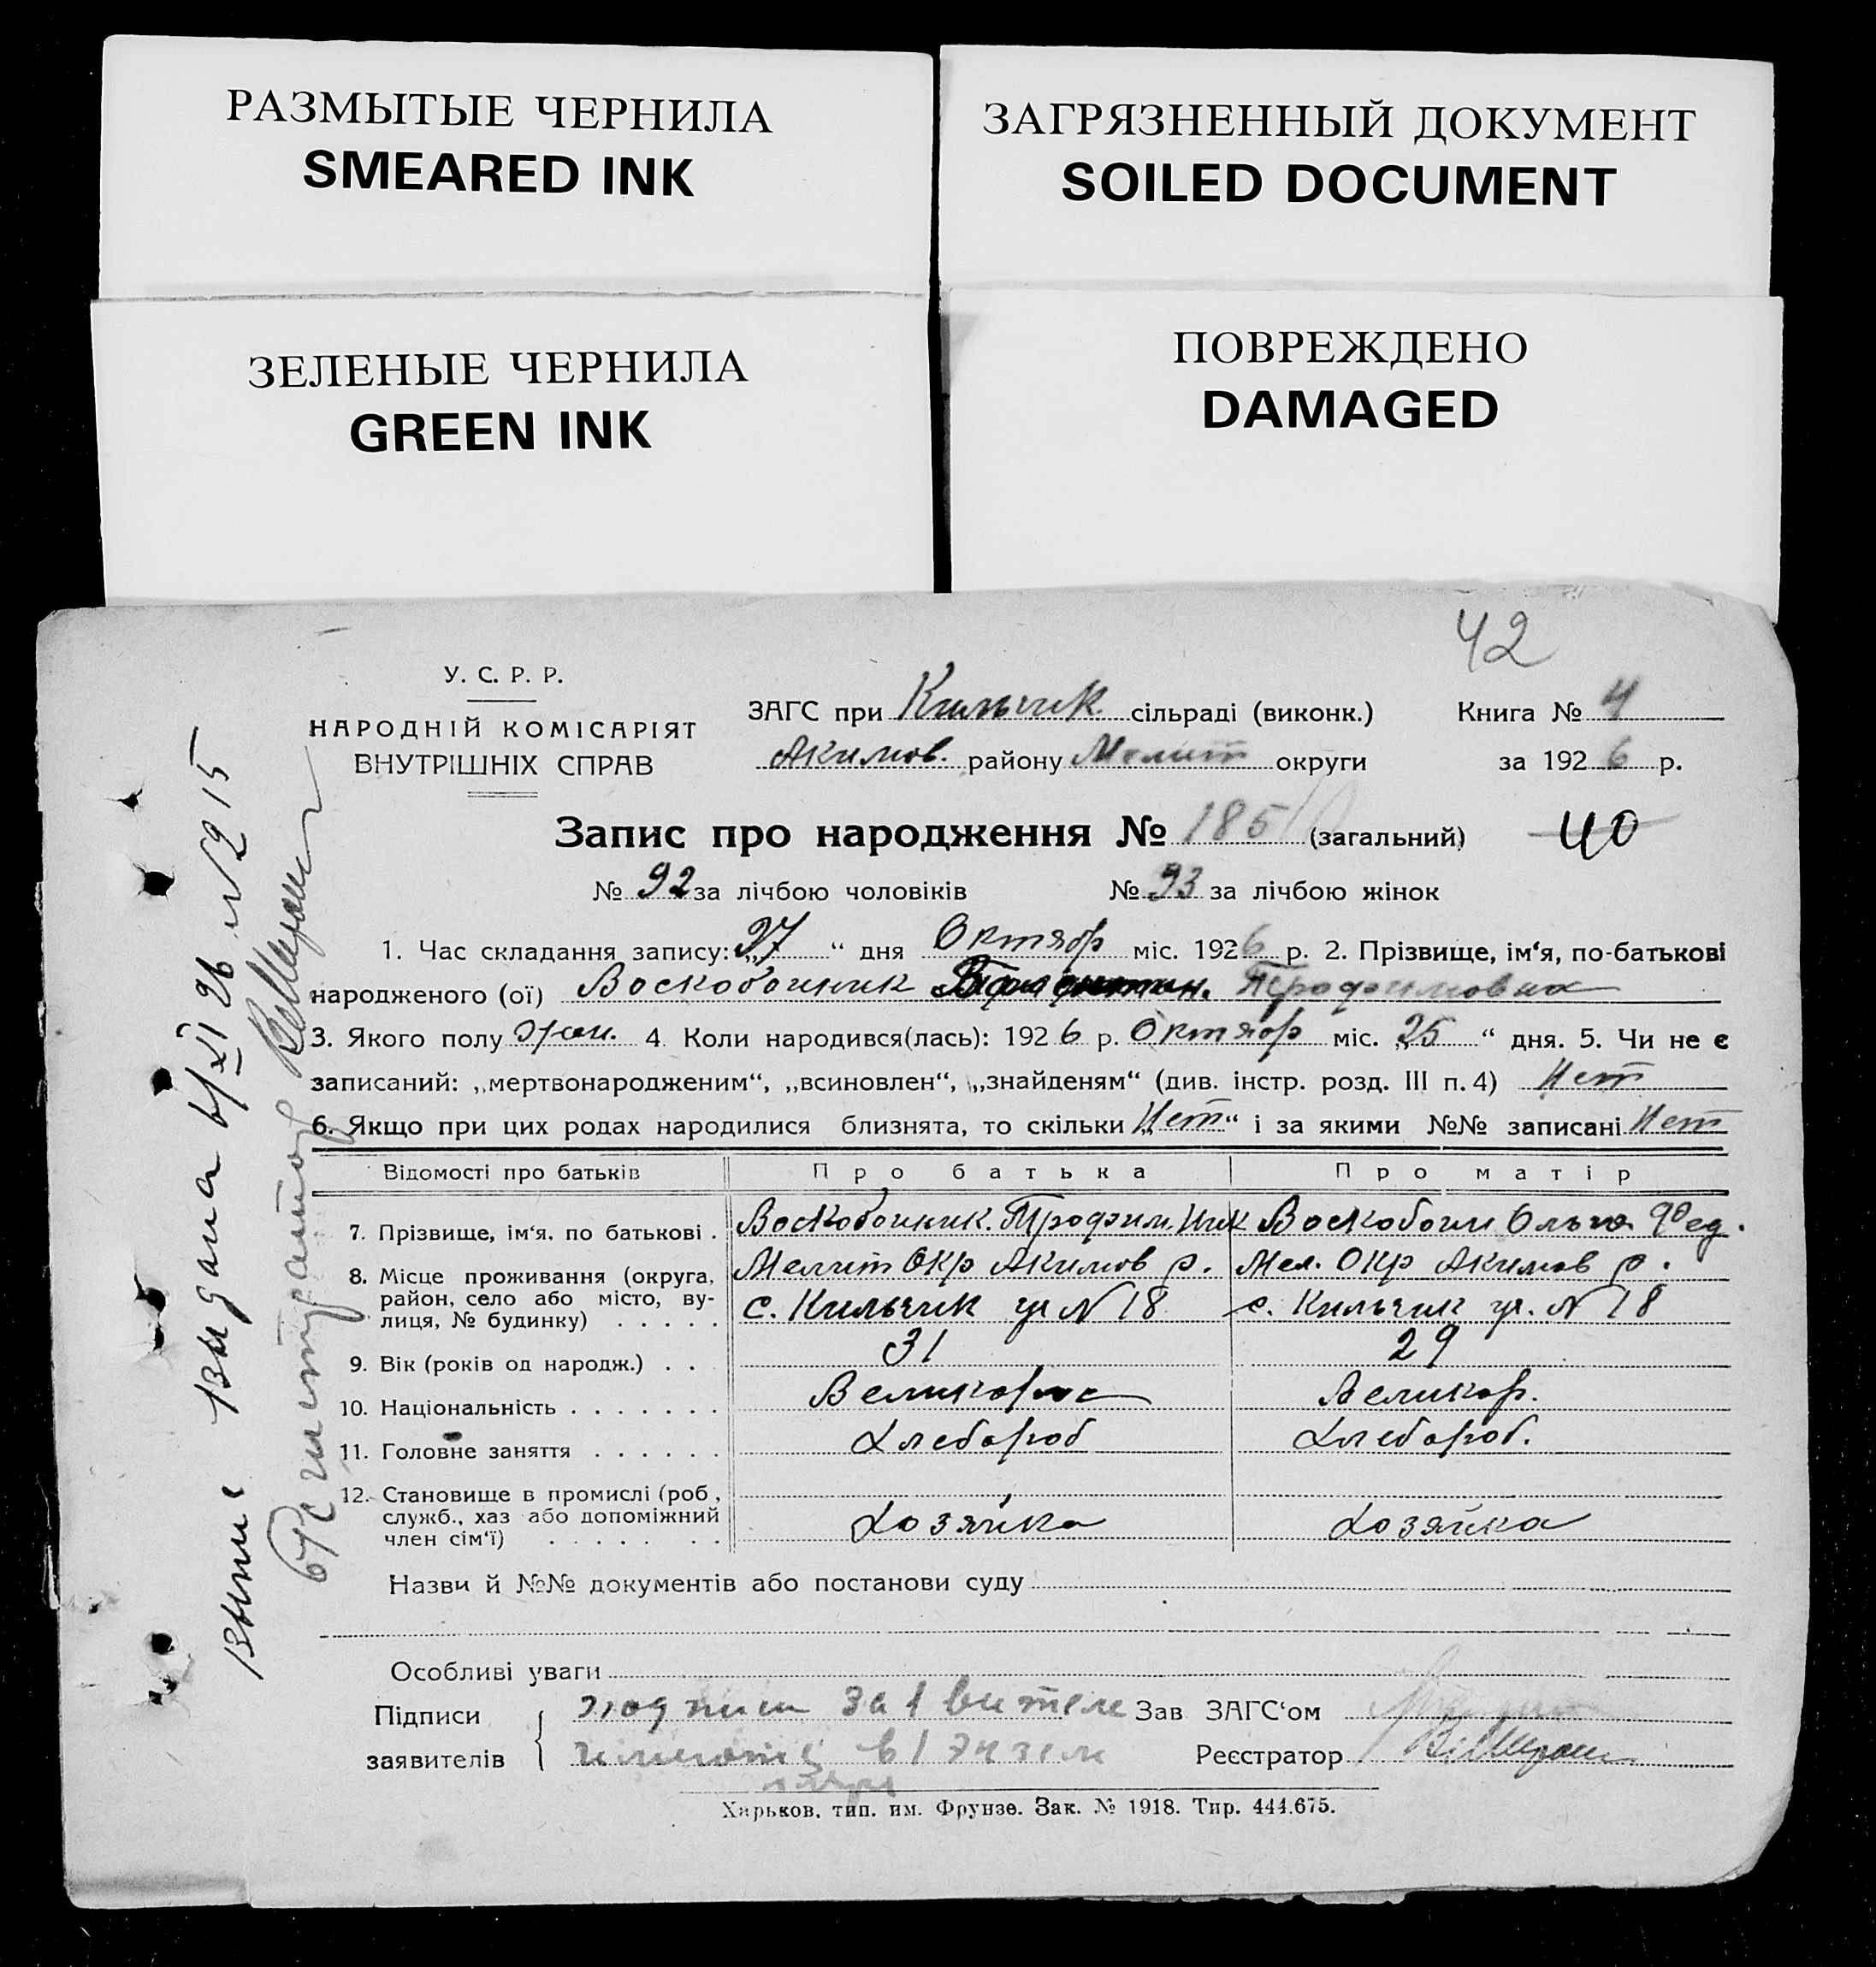 РАЗМЫТЫЕ ЧЕРНИЛА
SMEARED INK
ЗАГРЯЗНЕННЫЙ ДОКУМЕНТ
SOILED DOCUMENT
ЗЕЛЕНЫЕ ЧЕРНИЛА
GREEN INK
ПОВРЕЖДЕНО
DAMAGED
42
У. С. Р. Р.
НАРОДНІЙ КОМІСАРІЯТ
ВНУТРІШНІХ СПРАВ
ЗАГС при Кильчик сільраді (виконк.) Книга № 4
Акимов. району Мелит округи за 1926 р.
Запис про народження № 185 (загальний) 40
№ 92 за лічбою чоловіків № 93 за лічбою жінок
1. Час складання запису: „27“ дня Октябр міс. 1926 р. 2. Прізвище, ім‘я, по-батькові
народженого (ої) Воскобойник Трофимовна
3. Якого полу жен. 4 Коли народився(лась): 1926 р. Октябр міс. „25“ дня. 5. Чи не є
записаний: „мертвонародженим“, „всиновлен“, „знайденям“ (див. інстр. розд. III п. 4) Нет
6. Якщо при цих родах народилися близнята, то скільки „Нет“ і за якими №№ записані Нет
Відомості про батьків Про батька Про матір
7. Прізвище, ім‘я, по батькові . Воскобойник. Трофим. Ник Воскобойн Ольга Фед.
8. Місце проживання (округа, район, село або місто, вулиця, № будинку) . . . . .
Мелит Окр Акимов р. Мел. Окр Акимов р.
с. Кильчик ул N 18 с. Кильчик ул. N 18
9. Вік (років од народж.) . . 31 29
10. Національність . . . . . . . Великорос Великор.
11. Головне заняття . . . . . . Хлебороб Хлебороб.
12. Становище в промислі (роб, служб., хаз або допоміжний член сім‘ї) . . . . . . .
Хозяйка Хозяйка
Назви й №№ документів або постанови суду
Особливі уваги
Підписи подписи Зав ЗАГС‘ом
заявителів в 1 Реєстратор
Харьков, тип. им. Фрунзе. Зак. № 1918. Тир. 444.675.
выдана 4/XI 26 N 215